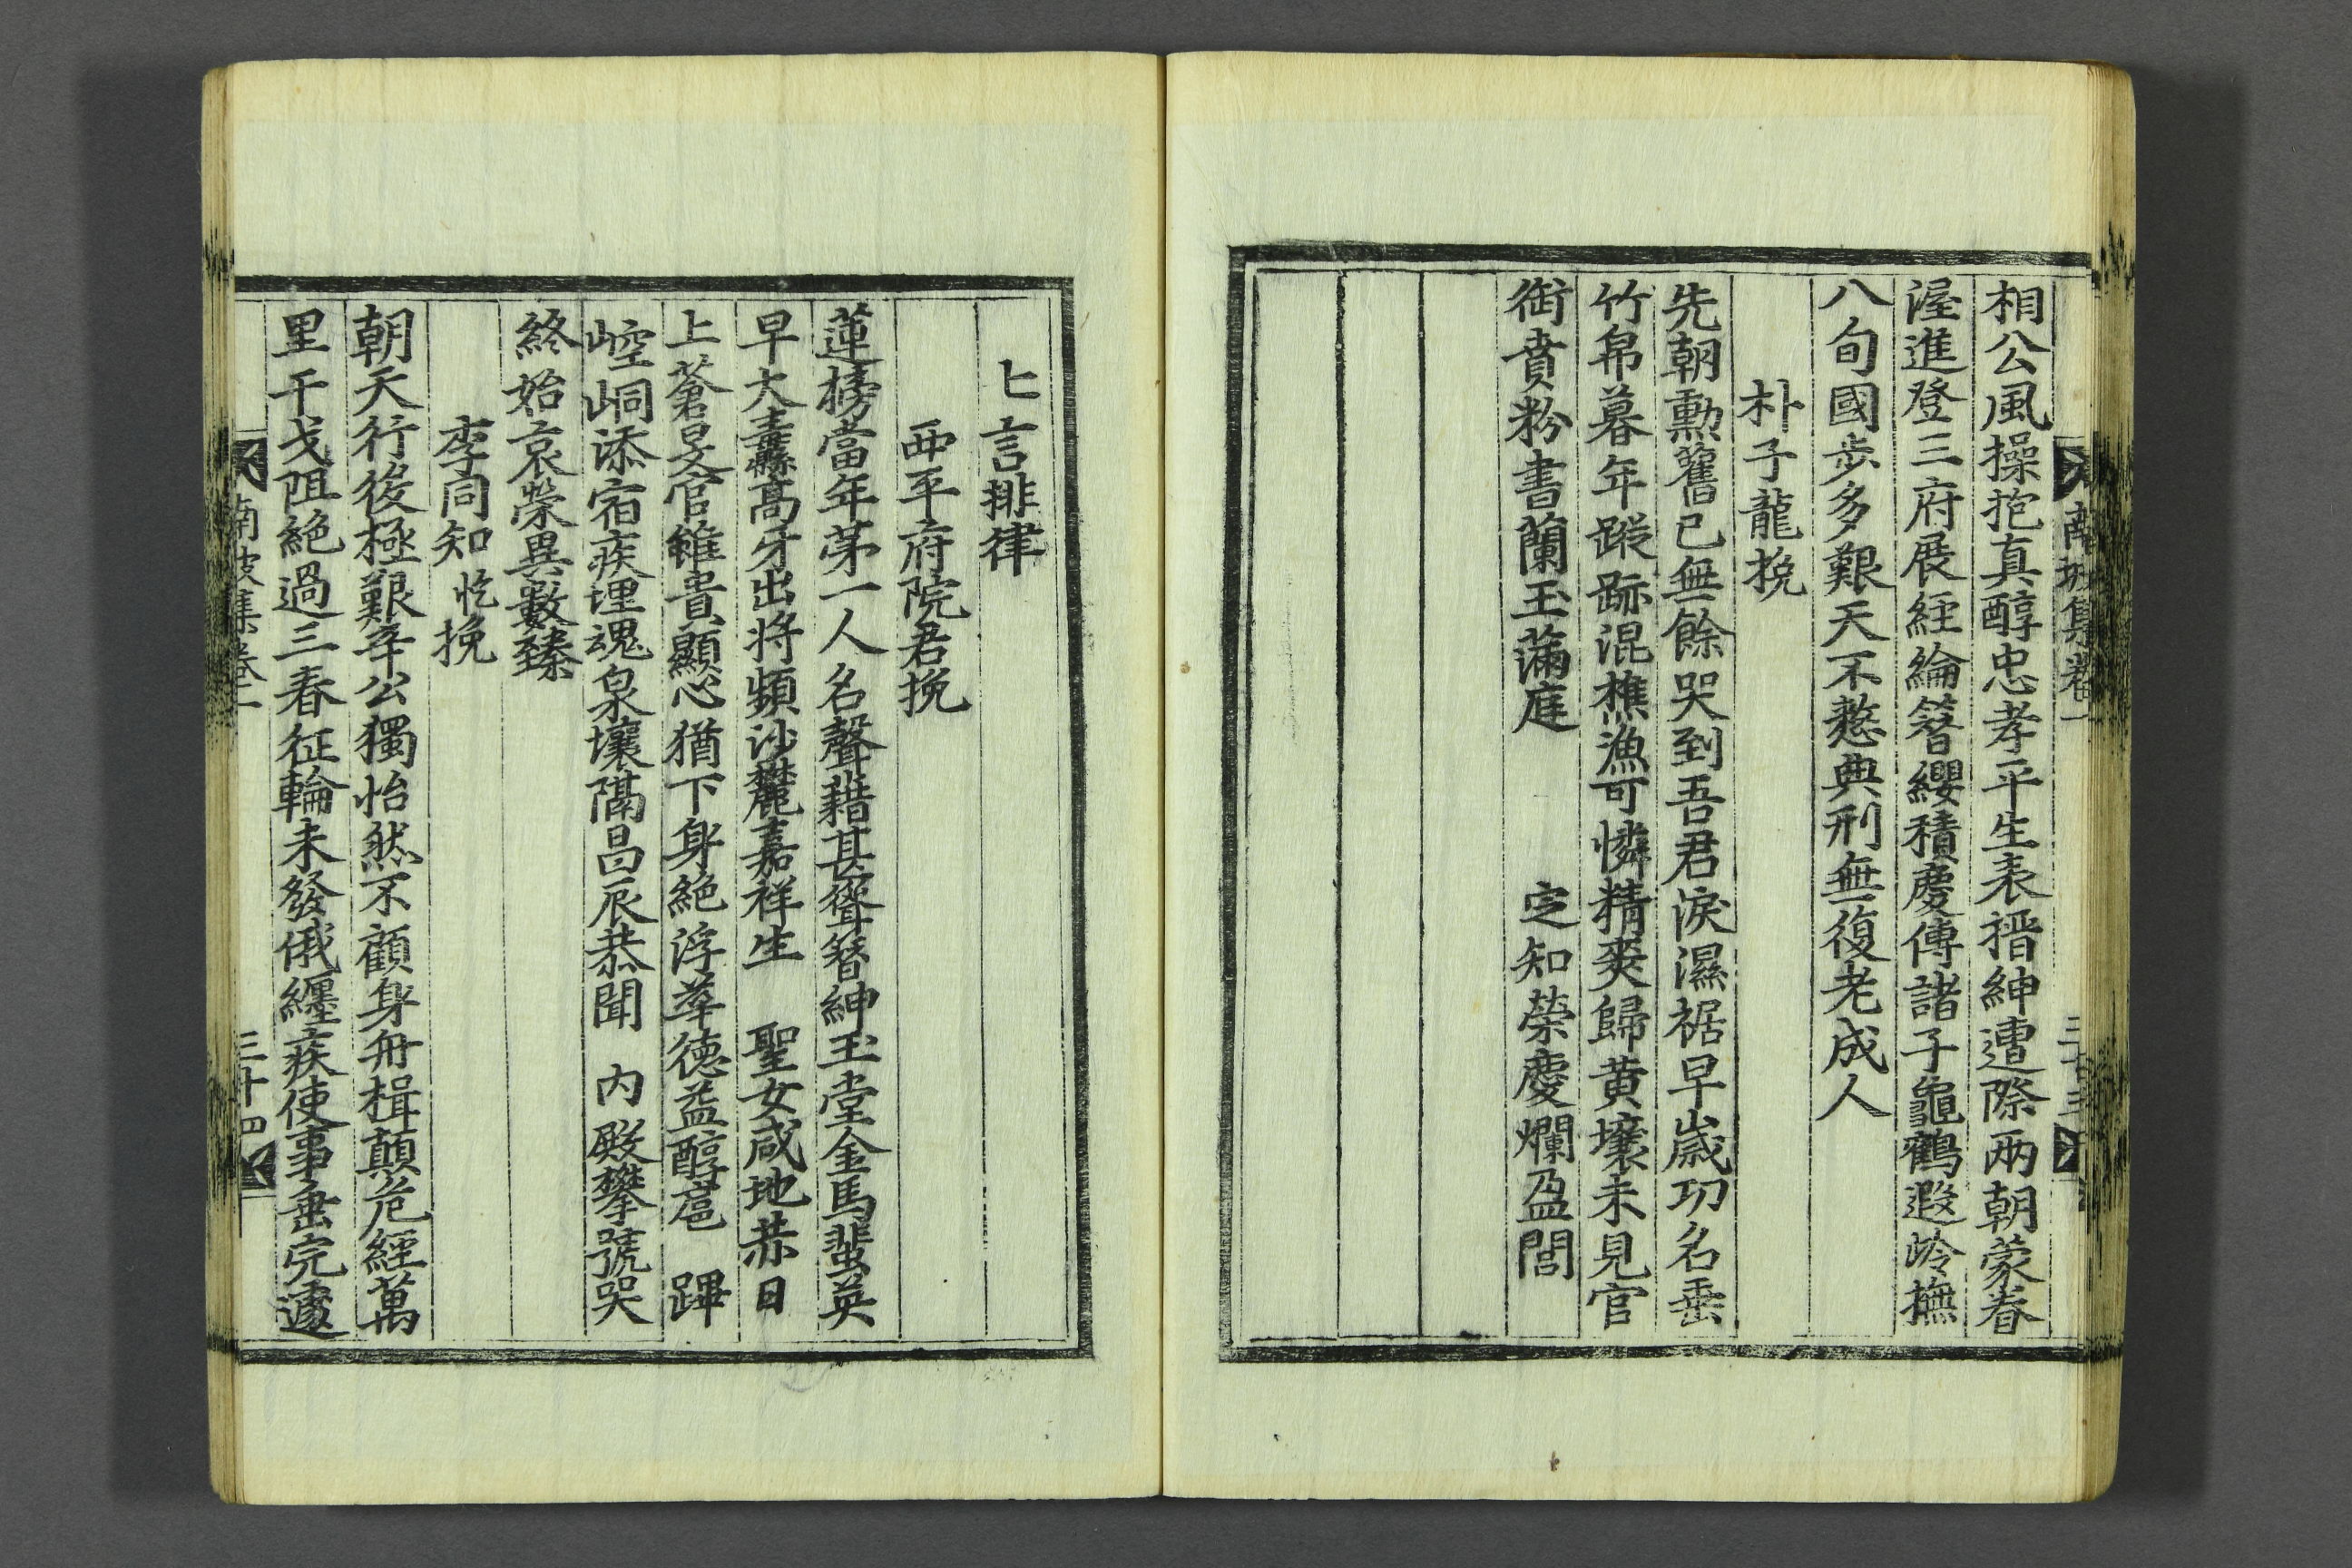 南坡集卷一
三十三
相公風操抱真醇忠孝平生表搢紳遭際兩朝蒙眷
渥進登三府展經綸簪纓積慶傳諸子龜鶴遐齡撫
八旬國步多艱天不憗典刑無復老成人
朴子龍挽
先朝勳舊已無餘哭到吾君淚濕裾早歲功名垂
竹帛暮年蹤跡混樵漁可憐精爽歸黃壤未見官
銜賁粉書蘭玉滿庭 定知榮慶爛盈閭
七言排律
西平府院君挽
蓮榜當年苐一人名聲藉甚聳簪紳玉堂金馬蜚英
早大纛高牙出將頻沙麓嘉祥生 聖女咸地恭日
上蒼旻官雖貴顯心猶下身絶浮華德益醇扈 蹕
崆峒添宿疾埋魂泉壤隔昌辰恭聞 內殿攀號哭
終始哀榮異數臻
李同知忔挽
朝天行後極艱辛公獨怡然不顧身舟楫顛危經萬
里干戈阻絶過三春征輪未發俄纏疾使事垂完遽
南坡集卷一
三十四